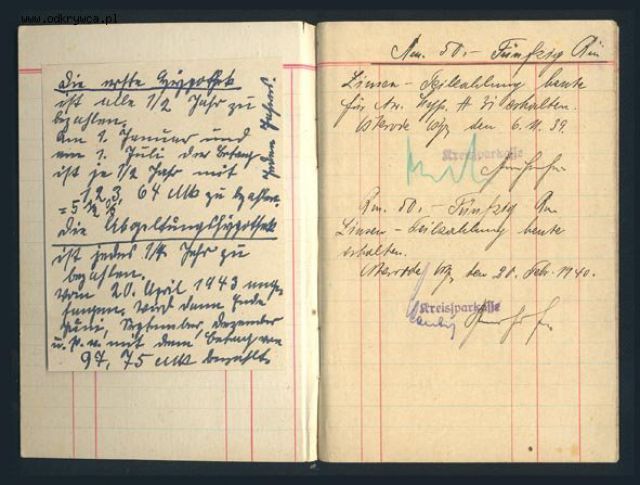 www.odkrywca.pl
Die erste Hypothek
ist alle 1/2 Jahr zu
bezahlen.
Am 1. Januar und
am 1. Juli der Betrag
ist je 1/2 Jahr mit
123,64 Mk zu bezahlen.
= 5 1/2 %
jeden Jahres.
Die Abgeltungshypothek
ist jedes 1/4 Jahr zu
bezahlen.
Vom 20. April 1943 ange-
fangen, wird dann Ende
Juni, September, Dezember
u.s.w. mit dem Betrag von
97,75 Mk bezahlt.
Rm. 50.- Fünfzig Rm
Zinsen-Teilzahlung heute
für Hyp. erhalten.
Osterode den 6.11.39.
Kreissparkasse
Rm. 50.- Fünfzig Rm
Zinsen-Teilzahlung heute
erhalten.
Osterode den 20. Feb. 1940.
Kreissparkasse